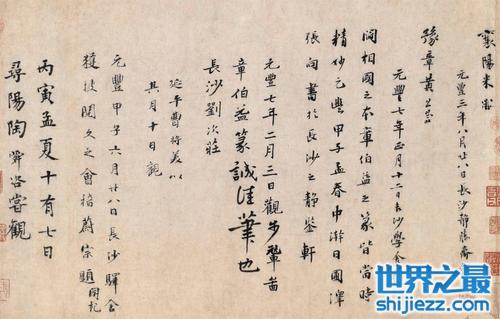 襄陽米黻
元豐三年八月廿八日長沙靜勝齋
豫章黃公器
元豐七年正月十二日長沙學舍
閻相國之本章伯益之篆皆當時
精妙元豐甲子孟春中澣日圃澤
張向書於長沙之靜鑒軒
元豐七年二月三日觀步輦啚
章伯益篆誠佳筆也
長沙劉次莊
延平曹將美以
其月十日觀
元豐甲子六月廿八日長沙驛舍
獲披閱久之會稽蔚宗題
丙寅孟夏十有七日
尋陽陶舜咨嘗觀
世界之最
shijiezz.com